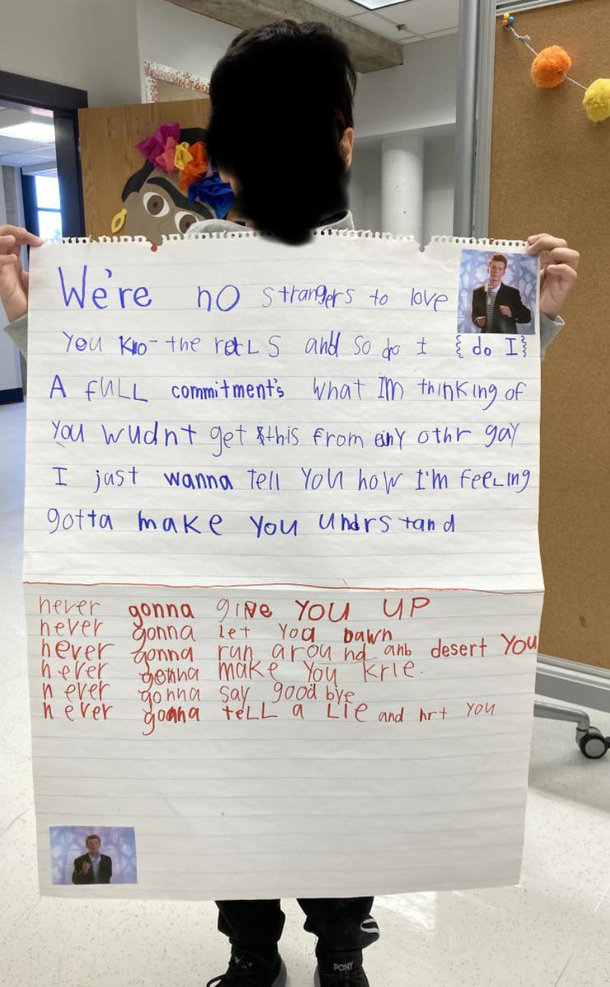 We're no strangers to love
You kno the rules and so do I {do I}
A fULL commitment's what I'm thinking of
You wudnt get this from any othr gay
I just wanna tell you how I'm feeling
gotta make you undrstand
never gonna give YOU UP
never gonna let you dawn
never gonna run around anb desert You
never gonna make you krie.
never gonna say good bye
never gonna teLL a Lie and hrt you
PONY